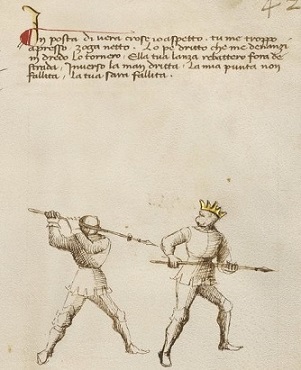 In posta di vera crose io aspetto. tu me troppo
apresso. zoga netto. Lo pe dritto che me denanzi
in dredo lo tornero. Ella tua lanza rebattero fora de
strada. Inverso la man dritta. La mia punta non
fallira. La tua sara fallita.
42